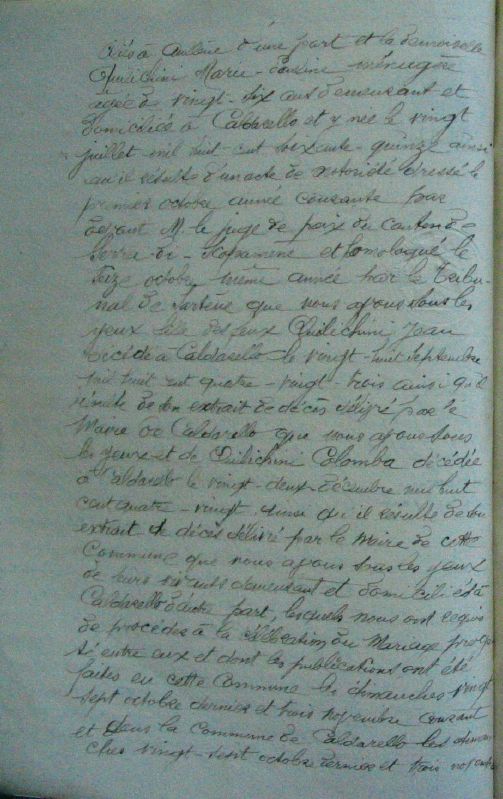 à Aullène d'une part et la demoiselle
Quilichini Marie-Dovine ménagère
agée de vingt-six ans demeurant et
domiciliée à Caldarello et y née le vingt
juillet mil huit cent soixante-quinze ainsi
qu'il résulte d'un acte de notoriété dressé le
premier octobre année courante par
devant M. le juge de paix du canton de
Serra di-Scopamene et homologué le
seize octobre même année par le Tribu-
nal de Sartène que nous avons sous les
yeux fille des feux Quilichini Jean
décédé à Caldarello le vingt-huit septembre
mil huit cent quatre-vingt-trois ainsi qu'il
résulte de son extrait de décès délivré par le
Maire de Caldarello que nous avons sous
les yeux et de Quilichini Colomba décédée
à Caldarello le vingt-deux décembre mil huit
cent quatre-vingt, ainsi qu'il résulte de son
extrait de décès délivré par le Maire de cette
Commune que nous avons sous les yeux
de leurs vivants demeurant et domiciliés à
Caldarello d'autre part, lesquels nous ont requis
de procéder à la célébration du Mariage proje-
té entre eux et dont les publications ont été
faites en cette Commune les dimanches vingt
sept octobre dernier et trois novembre courant
et dans la commune de Caldarello les diman-
ches vingt-sept octobre dernier et trois novembre